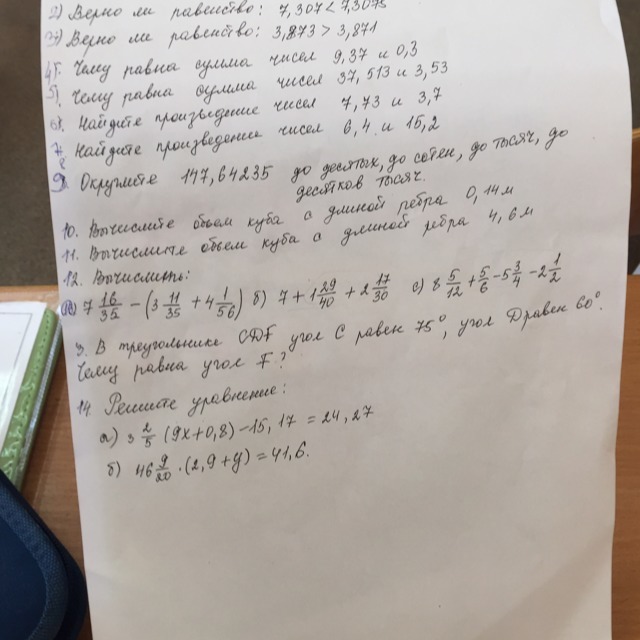 2) Верно ли равенство: 7,307 < 7,3075
3) Верно ли равенство: 3,873 > 3,871
4. Чему равна сумма чисел 9,37 и 0,3
5. Чему равна сумма чисел 37,513 и 3,53
6. Найдите произведение чисел 7,73 и 3,7
7. Найдите произведение чисел 6,4 и 15,2
8
9. Округлите 147,64235 до десятых, до сотен, до тысяч, до
десятков тысяч.
10. Вычислите объем куба с длиной ребра 0,14 м
11. Вычислите объем куба с длиной ребра 4,6 м
12. Вычислить:
а) 7 16/35 - (3 11/35 + 4 1/56) б) 7 + 1 29/40 + 2 17/30 с) 8 5/12 + 5/6 - 5 3/4 - 2 1/2
3. В треугольнике CDF угол C равен 75°, угол D равен 60°.
Чему равна угол F?
14 Решите уравнение:
а) 3 2/5 (9x+0,8) - 15,17 = 24,27
б) 46 9/20 · (2,9+y) = 41,6.